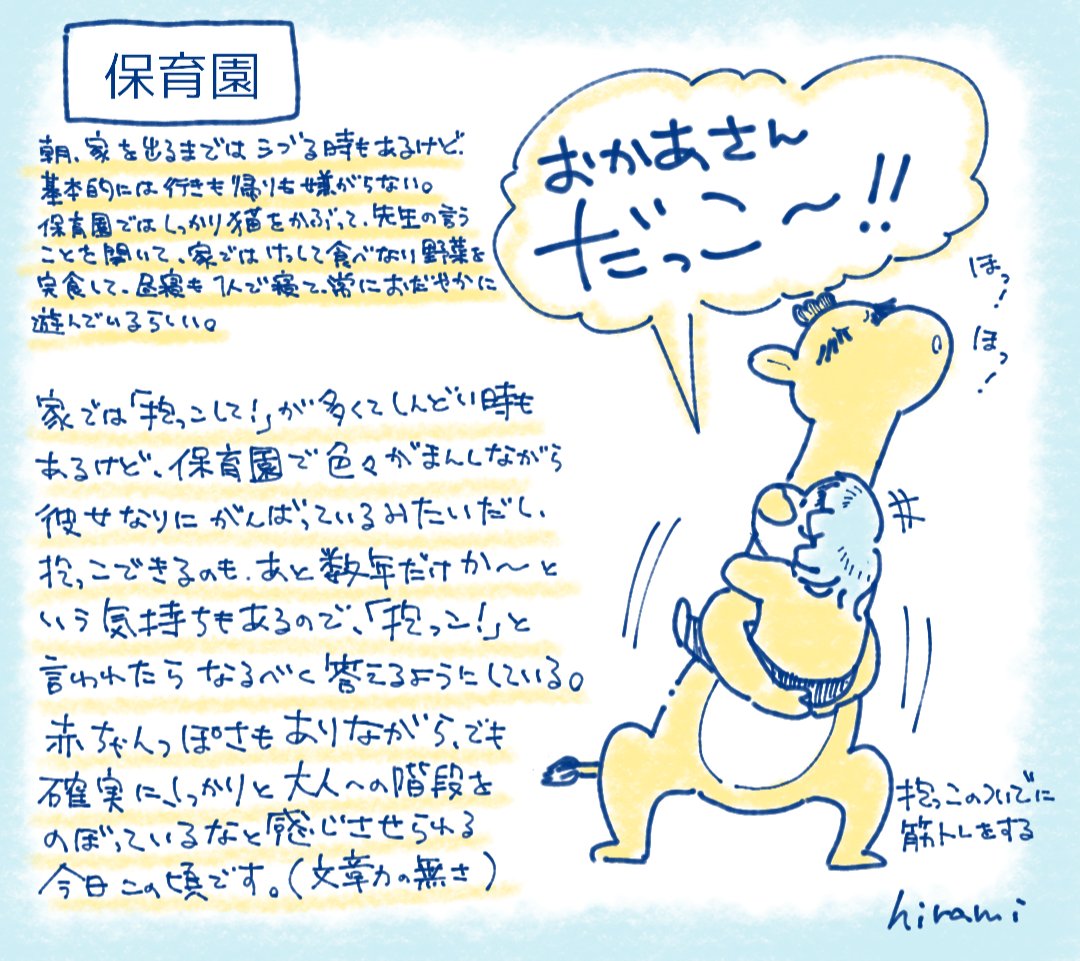 保育園
朝、家を出るまではシブる時もあるけど、
基本的には行きも帰りも嫌がらない。
保育園ではしっかり猫をかぶって、先生の言う
ことを聞いて、家ではけっして食べない野菜を
完食して、昼寝も1人で寝て、常におだやかに
遊んでいるらしい。
家では「抱っこして!」が多くてしんどい時も
あるけど、保育園で色々がまんしながら
彼女なりにがんばっているみたいだし、
抱っこできるのも、あと数年だけか〜と
いう気持ちもあるので、「抱っこ!」と
言われたらなるべく答えるようにしている。
赤ちゃんっぽさもありながら、でも
確実に、しっかりと大人への階段を
のぼっているなと感じさせられる
今日この頃です。(文章力の無さ)
おかあさん
だっこ〜!!
ほっ!
ほっ!
抱っこのついでに
筋トレをする
hirami